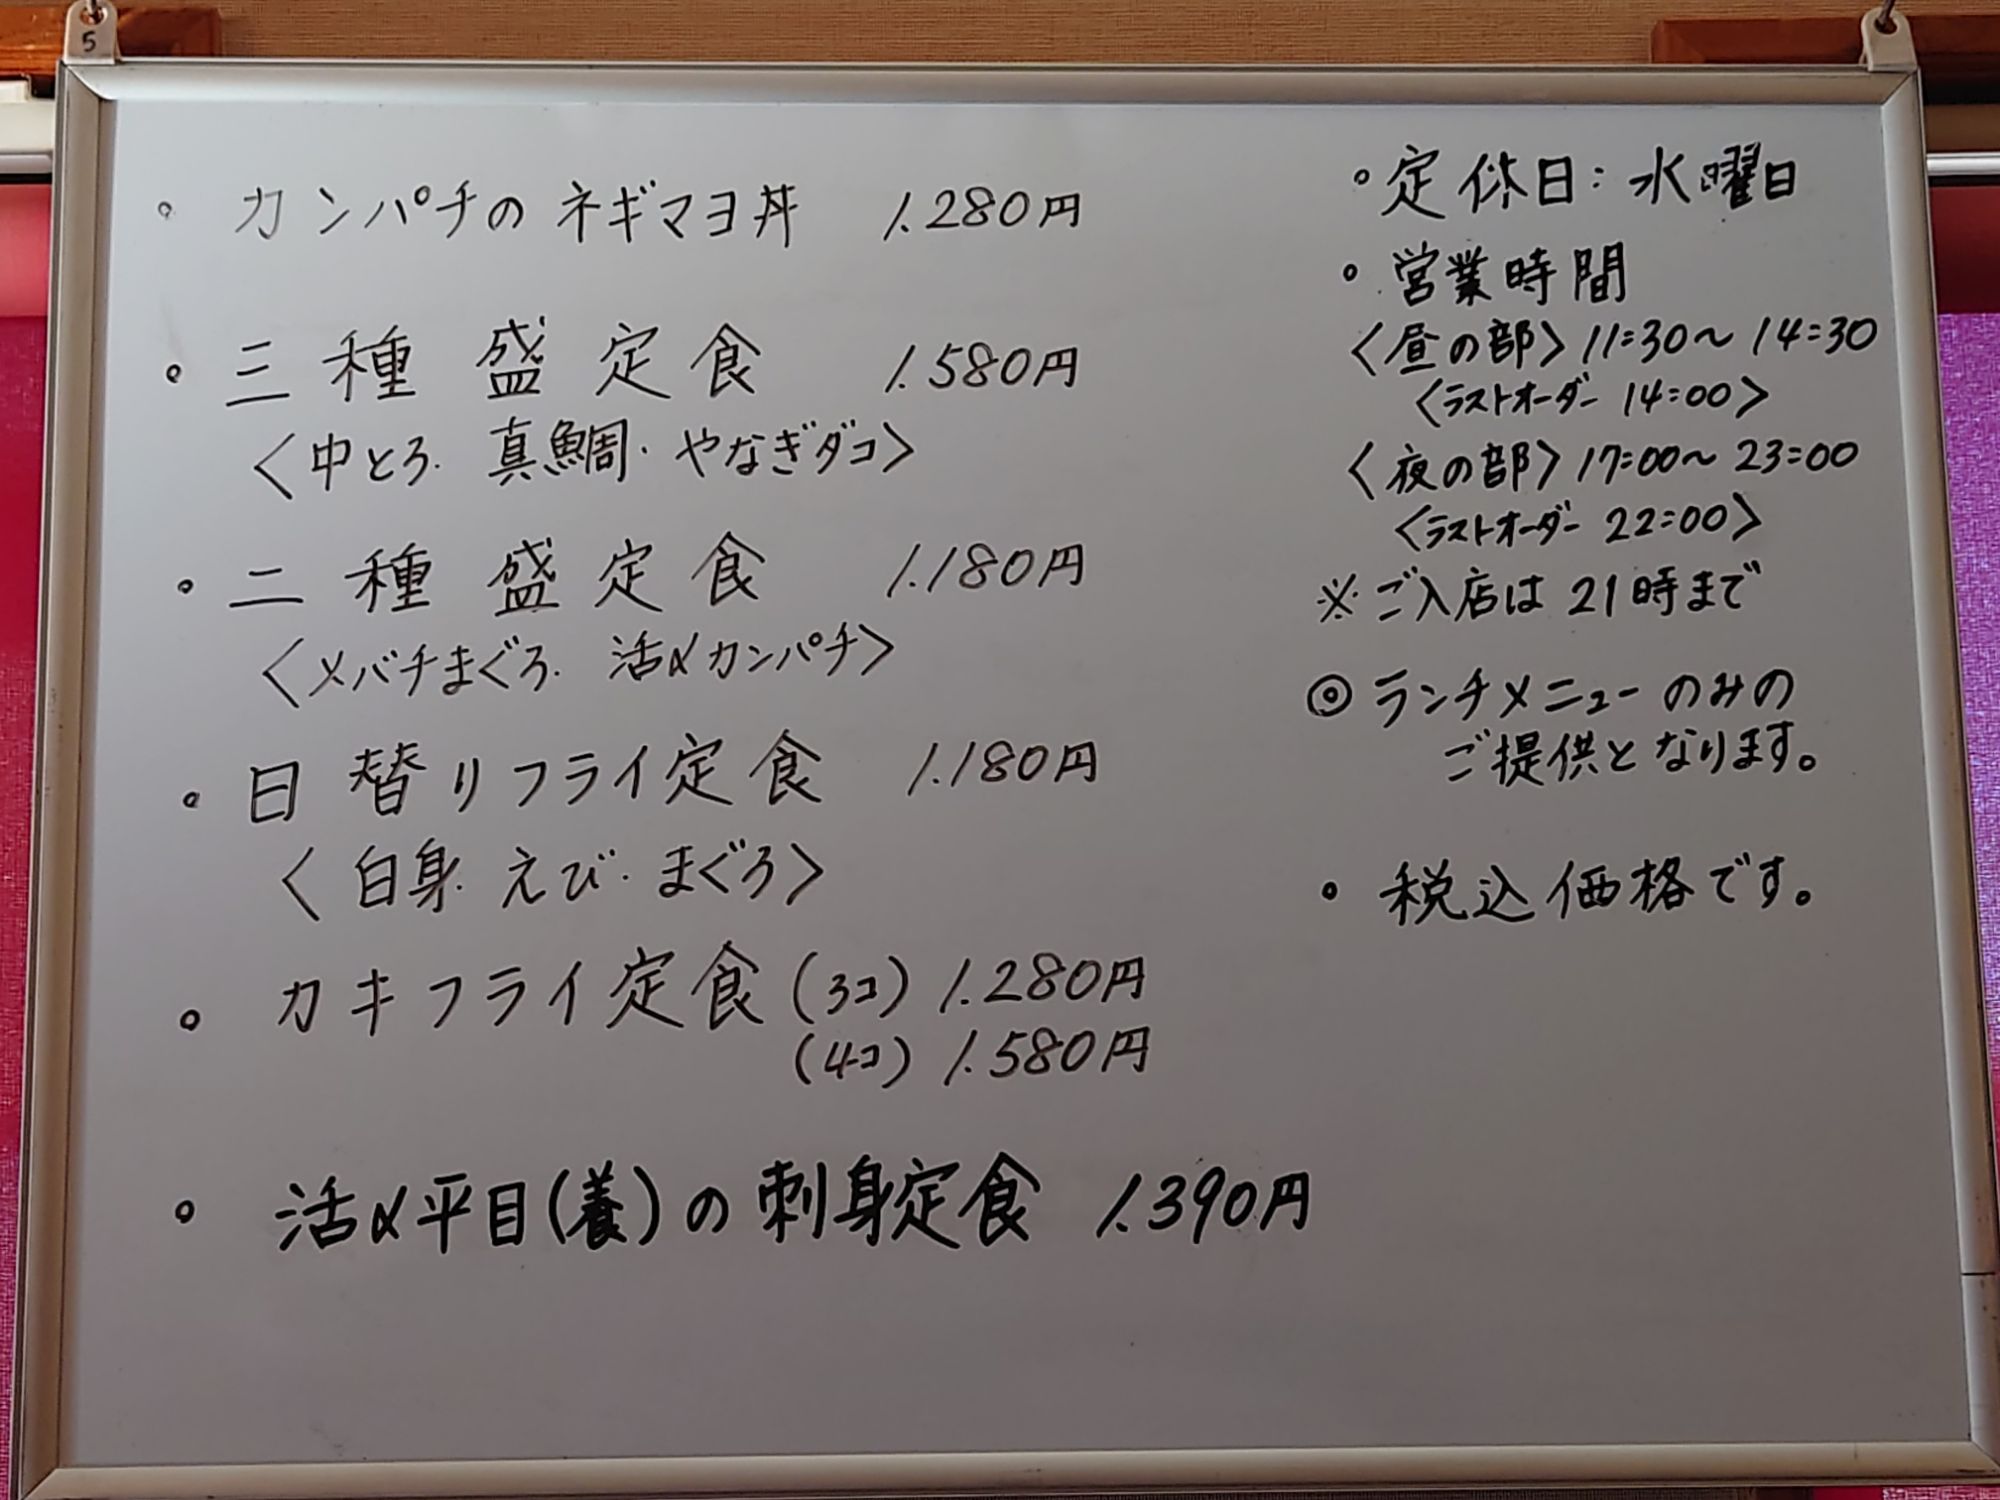 5
。カンパチのネギマヨ丼 1.280円
。三種盛定食 1.580円
〈中とろ. 真鯛・やなぎダコ〉
。二種盛定食 1.180円
〈メバチまぐろ. 活〆カンパチ〉
。日替りフライ定食 1.180円
〈白身. えび・まぐろ〉
。カキフライ定食(3コ) 1.280円
(4コ) 1.580円
。活〆平目(養)の刺身定食 1.390円
。定休日: 水曜日
。営業時間
〈昼の部〉11:30～14:30
〈ラストオーダー 14:00〉
〈夜の部〉17:00～23:00
〈ラストオーダー 22:00〉
※ご入店は21時まで
◎ランチメニューのみの
ご提供となります。
。税込価格です。